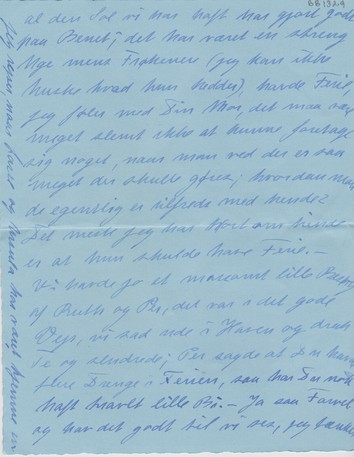 BB1329
al den Sol vi har haft har gjort godt
paa Benet; det har været en streng
Uge mens Frøkenen (jeg kan ikke
huske hvad hun hedder), havde Ferie,
jeg føler med Din Mor, det maa være
meget slemt ikke at kunne foretage
sig noget, naar man ved der er saa
meget der skulle gøres; hvordan
de egentlig er tilfreds med hende?
Det sidste jeg har hørt om hende
er at hun skulde have Ferie. —
Vi havde jo et morsomt lille Besøg
af Ruth og Per, det var i det gode
Vejr, vi sad ude i Haven og drak
Te og sludrede; Per sagde at Du havde
flere Drenge i Ferien, saa har Du nok
haft travlt lille Bi. — Ja saa Farvel
og hav det godt til vi ses, jeg tænker